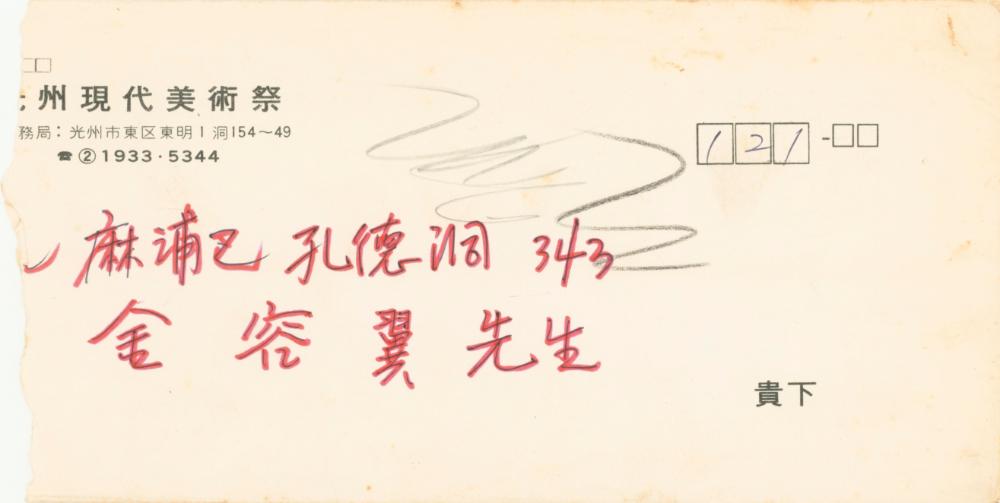 州現代美術祭
務局: 光州市東区東明1洞154～49
☎ ②1933·5344
121-
麻浦区 孔德洞 343
金容翼 先生
貴下